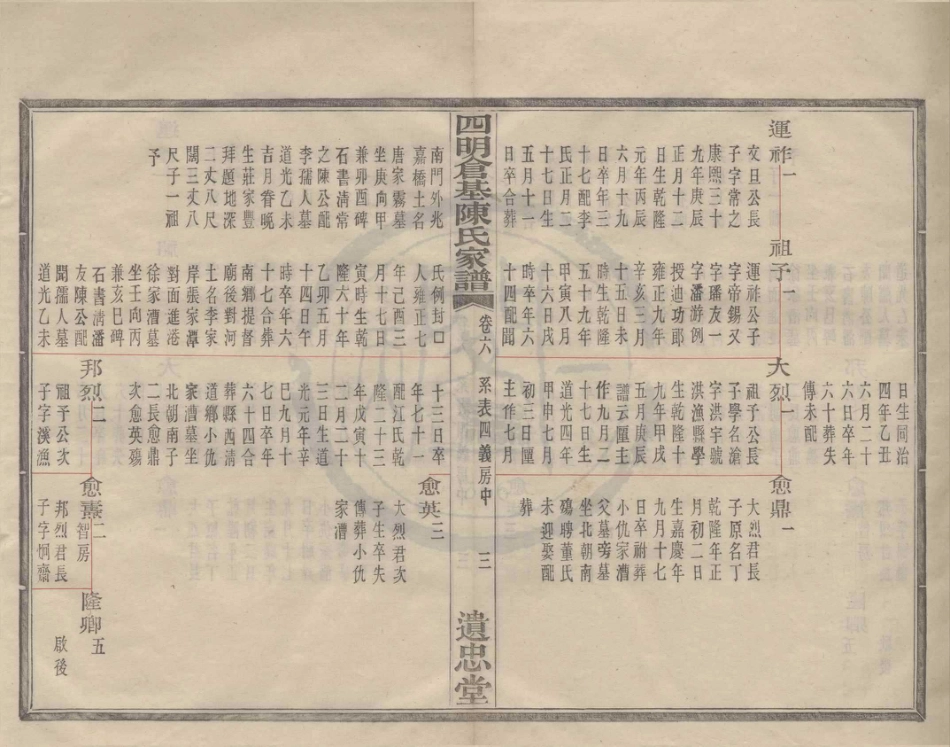 運祚一
文旦公長
子字常之
康熙三十
九年庚辰
正月十二
日生乾隆
元年丙辰
六月十九
日卒年三
十七配李
氏正月二
十七日生
五月十一
日卒合葬
祖予一
運祚公子
字帝錫又
字璠友一
字潘澍例
授迪功郎
雍正九年
辛亥三月
十五日未
時生乾隆
五十九年
甲寅八月
十六日戌
時卒年六
十四配聞
日生同治
四年乙丑
六月二十
六日卒年
六十葬失
傳未配
大烈一
祖予公長
子學名滄
字洪宇號
洪漁縣學
生乾隆十
九年甲戌
五月庚辰
譜云匯主
作九月二
十七日生
道光四年
甲申七月
初三日匯
主作七月
愈鼎一
大烈君長
子原名丁
乾隆年正
月初二日
生嘉慶年
九月十七
日卒祔葬
小仇家漕
父墓旁墓
坐北朝南
碼聘董氏
未迎娶配
葬
四明倉基陳氏家譜
卷六
系表四義房中
三
遺忠堂
南門外兆
嘉橋土名
唐家霧墓
坐庚向甲
兼卯酉碑
石書清常
之陳公龍
李孺人墓
道光乙未
吉月眷晚
生莊家豐
拜題地深
二丈八尺
闊三丈八
尺子一祖
予
氏例封
人雍正七
年己酉三
月十七日
寅時生乾
隆六十年
乙卯五月
十四日午
時卒年六
十七合葬
南鄉提督
廟後對河
土名李家
岸張家潭
對面進港
徐家漕墓
坐壬向丙
兼亥巳碑
石書清潘
友陳公配
聞孺人墓
道光乙未
十三日卒
年七十一
配江氏乾
隆二十三
年戊寅十
二月二十
三日生道
光元年辛
巳九月十
七日卒年
六十四合
葬縣西清
道鄉小仇
家漕墓坐
北朝南子
二長愈鼎
次愈英殤
邦烈二
祖予公次
子字漢漁
愈英三
大烈君次
子生卒失
傳葬小仇
家漕
愈燾二智房
邦烈君長
子字炯齋
隆卿五
啟後